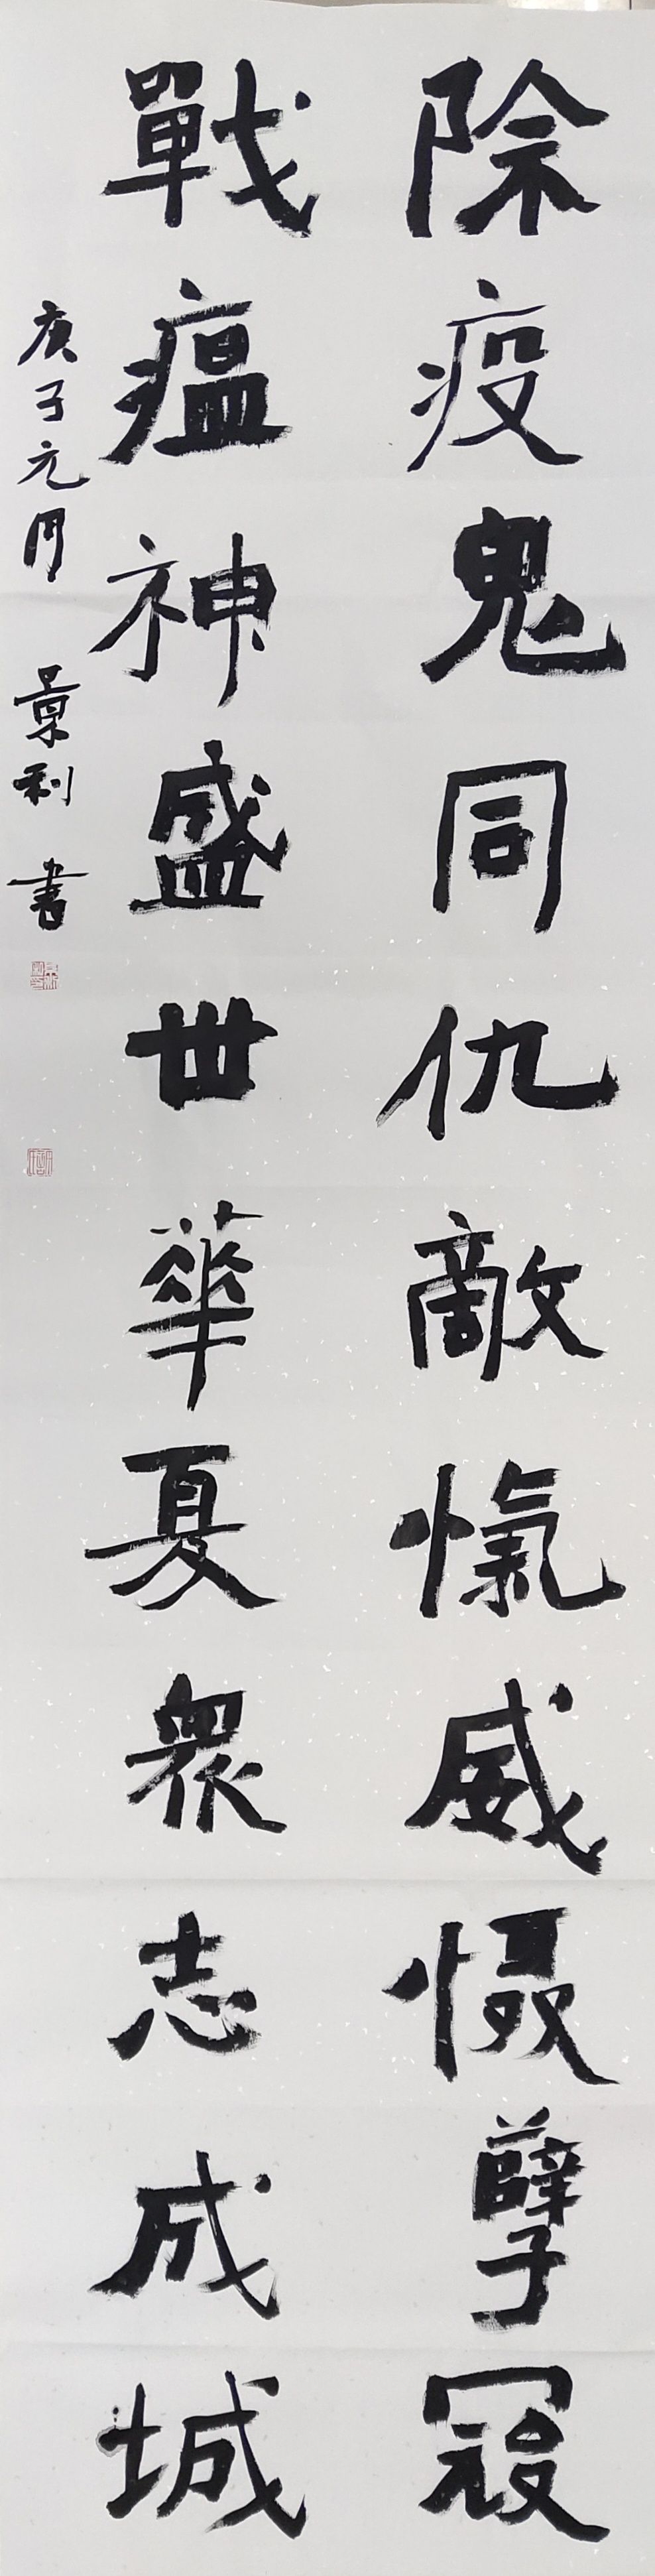 除疫鬼同仇敵愾威慑孽冦
戰瘟神盛世華夏衆志成城
庚子元月 景利書